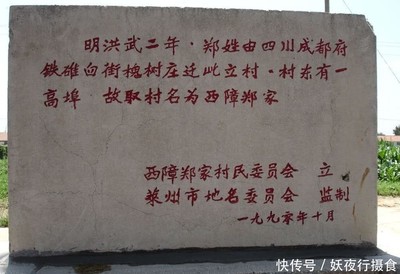 明洪武二年·郑姓由四川成都府
铁碓臼街槐树庄迁此立村·村东有一
高埠·故取村名为西障郑家
西障郑家村民委员会 立
莱州市地名委员会 监制
一九九零年十月
快传号/妖夜行摄食